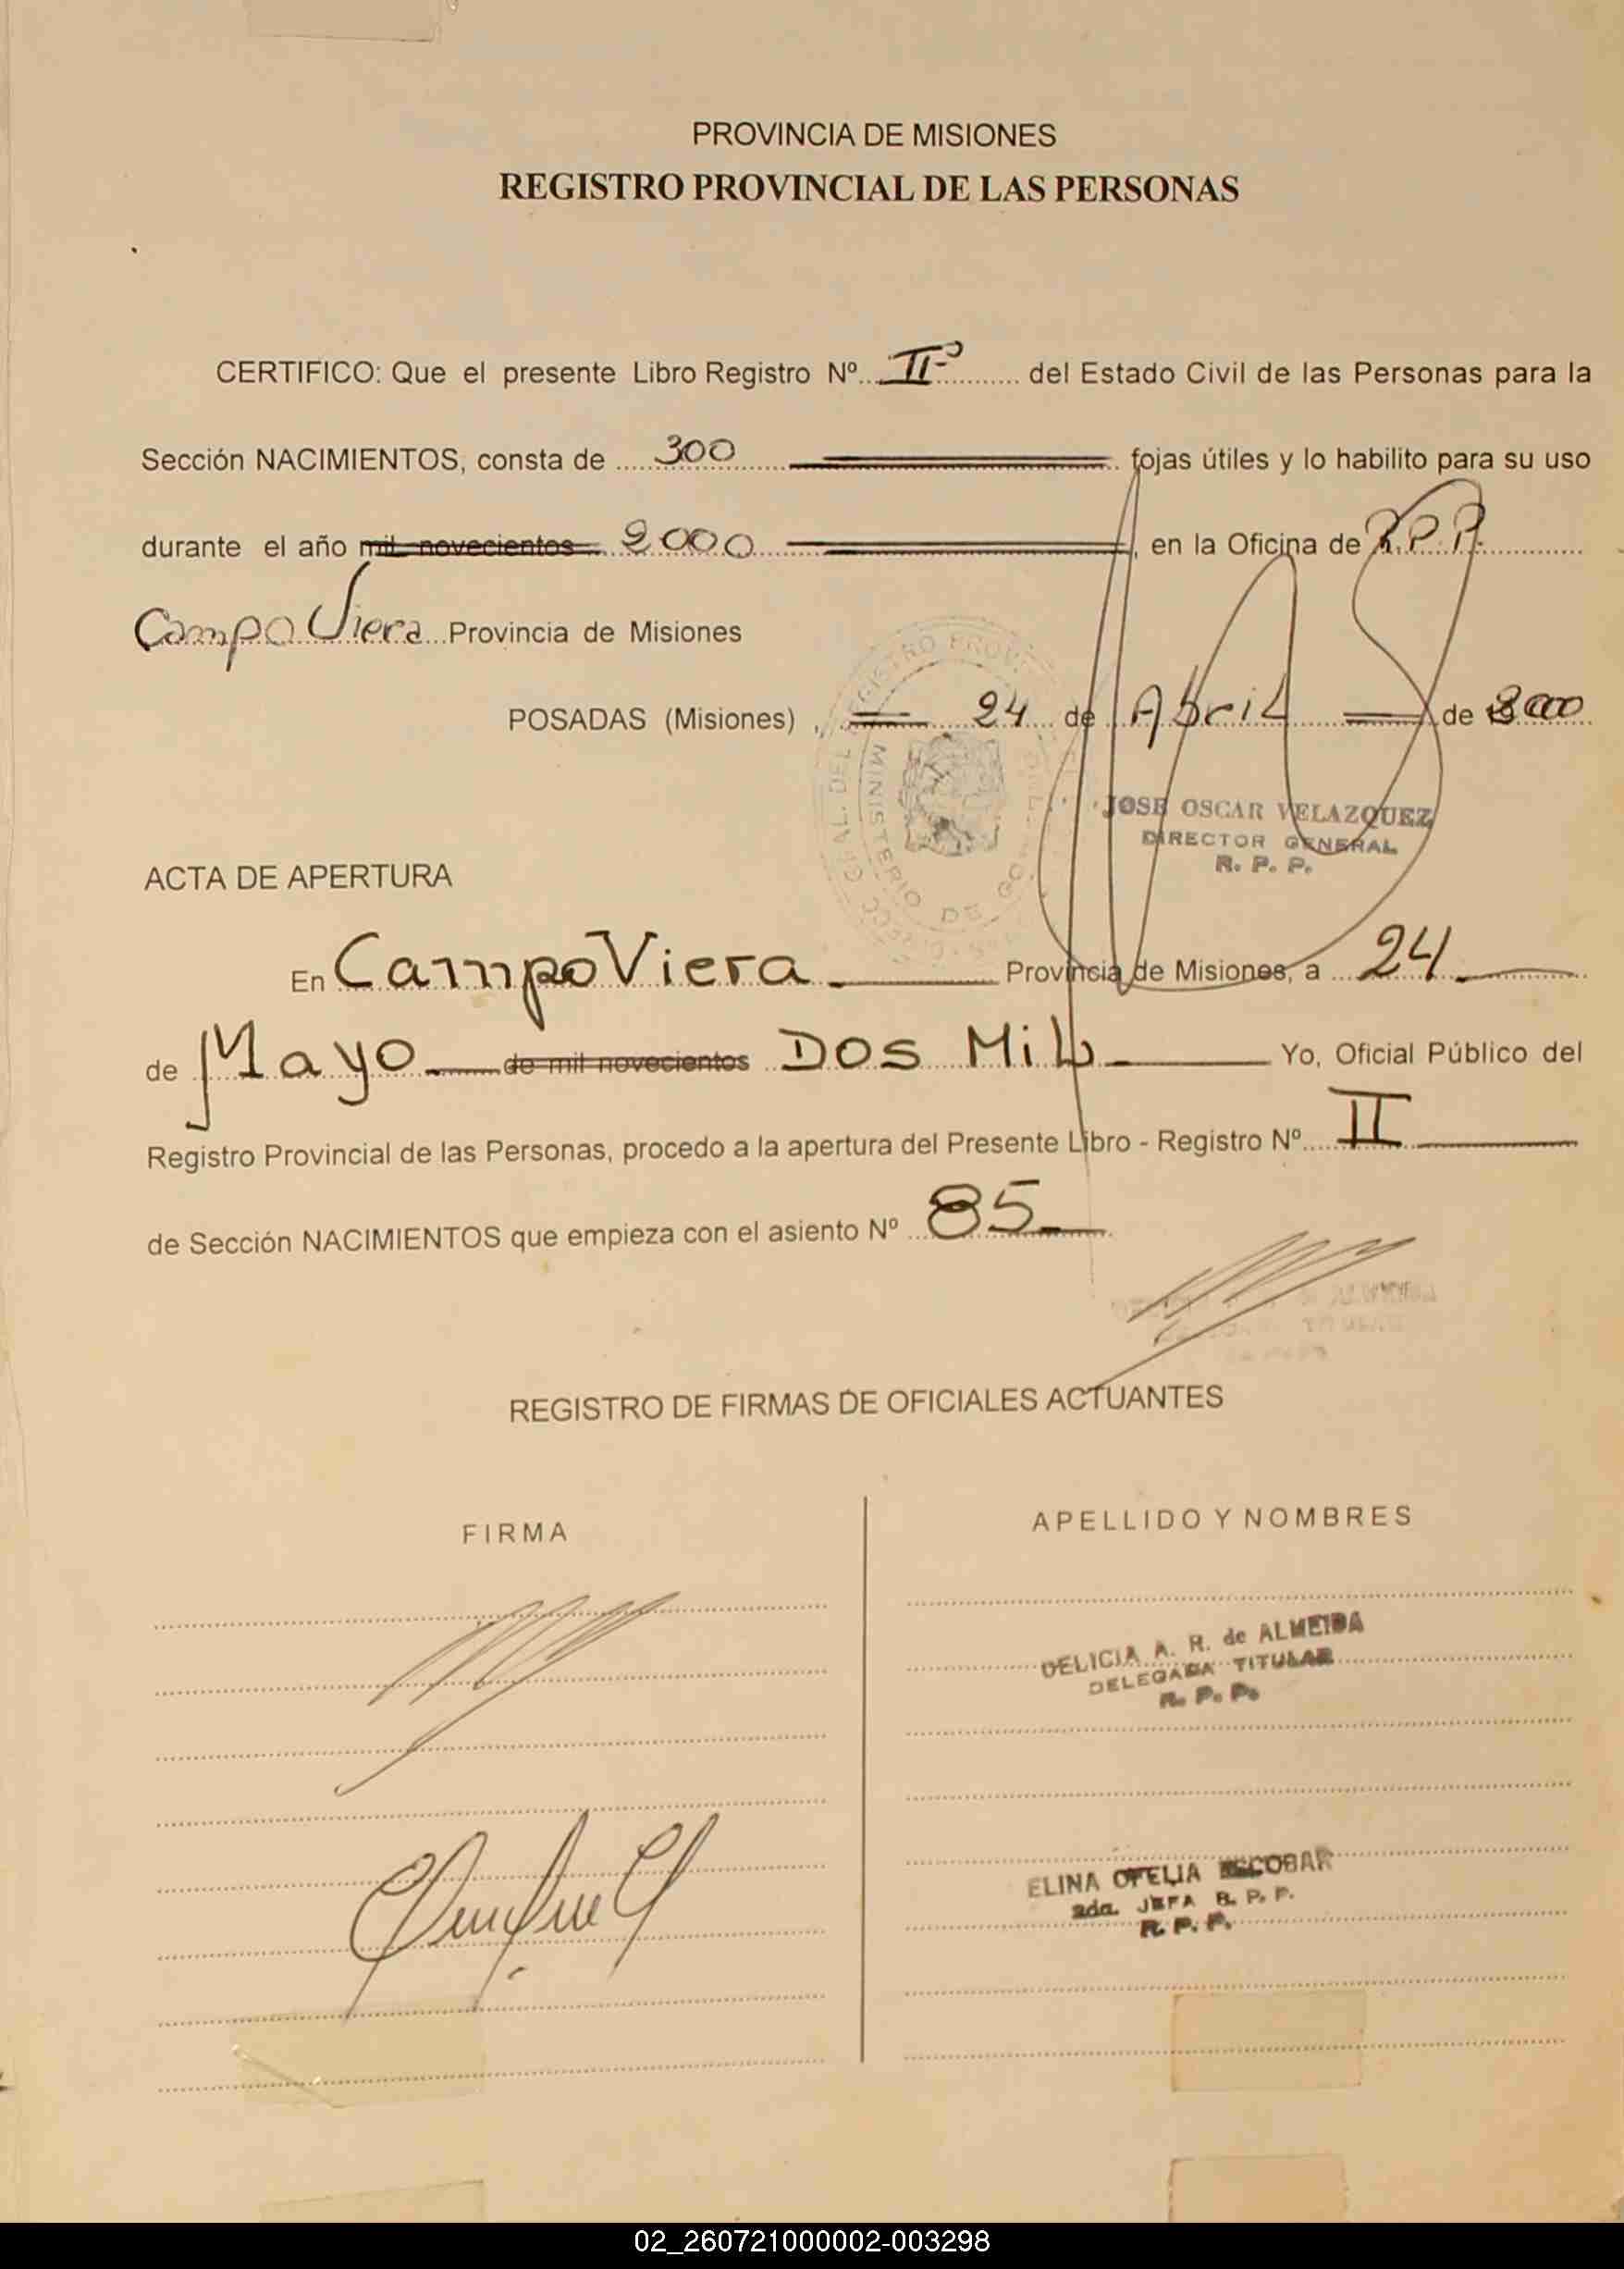 PROVINCIA DE MISIONES
REGISTRO PROVINCIAL DE LAS PERSONAS
CERTIFICO: Que el presente Libro Registro Nº II° del Estado Civil de las Personas para la
Sección NACIMIENTOS, consta de 300 fojas útiles y lo habilito para su uso
durante el año mil novecientos 2000, en la Oficina de R.P.P.
Campo Viera Provincia de Misiones
POSADAS (Misiones), 24 de Abril de 2000
JOSE OSCAR VELAZQUEZ
DIRECTOR GENERAL
R. P. P.
ACTA DE APERTURA
En Campo Viera Provincia de Misiones, a 24
de Mayo de mil novecientos Dos Mil Yo, Oficial Público del
Registro Provincial de las Personas, procedo a la apertura del Presente Libro - Registro Nº II
de Sección NACIMIENTOS que empieza con el asiento Nº 85
REGISTRO DE FIRMAS DE OFICIALES ACTUANTES
FIRMA
APELLIDO Y NOMBRES
DELICIA A. R. de ALMEIDA
DELEGADA TITULAR
R. P. P.
ELINA OFELIA ESCOBAR
2da. JEFA R. P. P.
R. P. P.
02_260721000002-003298